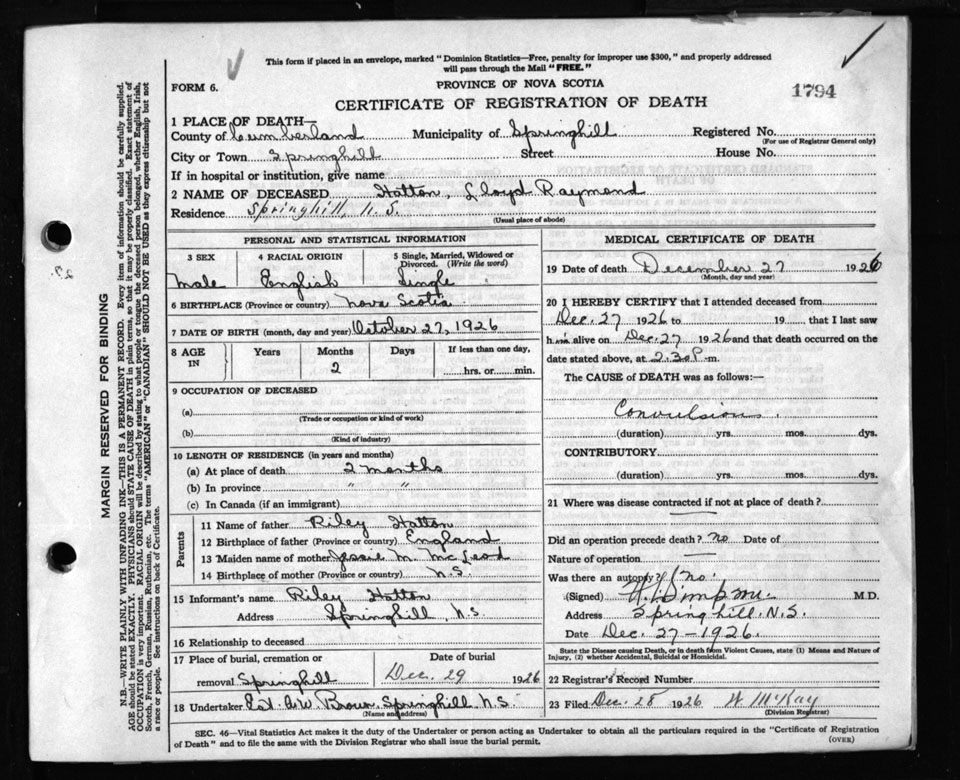 This form if placed in an envelope, marked "Dominion Statistics—Free, penalty for improper use $300," and properly addressed
will pass through the Mail "FREE."
FORM 6.
PROVINCE OF NOVA SCOTIA
1794
CERTIFICATE OF REGISTRATION OF DEATH
1 PLACE OF DEATH—
County of Cumberland Municipality of Springhill Registered No.
(For use of Registrar General only)
City or Town Springhill Street House No.
If in hospital or institution, give name
2 NAME OF DECEASED Hatton, Lloyd Raymond
Residence Springhill, N.S.
(Usual place of abode)
PERSONAL AND STATISTICAL INFORMATION
3 SEX 4 RACIAL ORIGIN 5 Single, Married, Widowed or Divorced. (Write the word)
Male English Single
6 BIRTHPLACE (Province or country) Nova Scotia
7 DATE OF BIRTH (month, day and year) October 27, 1926
8 AGE IN Years Months Days If less than one day,
2 hrs. or min.
9 OCCUPATION OF DECEASED
(a)
(Trade or occupation or kind of work)
(b)
(Kind of industry)
10 LENGTH OF RESIDENCE (in years and months)
(a) At place of death 2 months
(b) In province " "
(c) In Canada (if an immigrant)
Parents
11 Name of father Riley Hatton
12 Birthplace of father (Province or country) England
13 Maiden name of mother Jessie M. McLeod
14 Birthplace of mother (Province or country) N.S.
15 Informant's name Riley Hatton
Address Springhill, N.S.
16 Relationship to deceased
17 Place of burial, cremation or removal Springhill
Date of burial
Dec. 29 1926
18 Undertaker Est. A.W. Brown Springhill N.S.
(Name and address)
MEDICAL CERTIFICATE OF DEATH
19 Date of death December 27 1926
(Month, day and year)
20 I HEREBY CERTIFY that I attended deceased from
Dec. 27 1926 to 19 that I last saw
him alive on Dec. 27 1926 and that death occurred on the
date stated above, at 2.30 P. m.
The CAUSE of DEATH was as follows:—
Convulsions.
(duration) yrs. mos. dys.
CONTRIBUTORY
(duration) yrs. mos. dys.
21 Where was disease contracted if not at place of death?
Did an operation precede death? no Date of
Nature of operation
Was there an autopsy? no.
(Signed) M.D.
Address Springhill N.S.
Date Dec. 27—1926.
State the Disease causing Death, or in death from Violent Causes, state (1) Means and Nature of
Injury, (2) whether Accidental, Suicidal or Homicidal.
22 Registrar's Record Number
23 Filed Dec. 28 1926 W McKay
(Division Registrar)
SEC. 46—Vital Statistics Act makes it the duty of the Undertaker or person acting as Undertaker to obtain all the particulars required in the "Certificate of Registration
of Death" and to file the same with the Division Registrar who shall issue the burial permit.
(OVER)
MARGIN RESERVED FOR BINDING
N.B.—WRITE PLAINLY WITH UNFADING INK—THIS IS A PERMANENT RECORD. Every item of information should be carefully supplied.
AGE should be stated EXACTLY. PHYSICIANS should STATE CAUSE OF DEATH in plain terms, so that it may be properly classified. Exact statement of
OCCUPATION is very important. RACIAL ORIGIN will be described by stating to what people or tongue the deceased person belonged, whether English, Irish,
Scotch, French, German, Russian, Ruthenian, etc. The terms "AMERICAN" or "CANADIAN" SHOULD NOT BE USED as they express citizenship but not
a race or people. See instructions on back of Certificate.